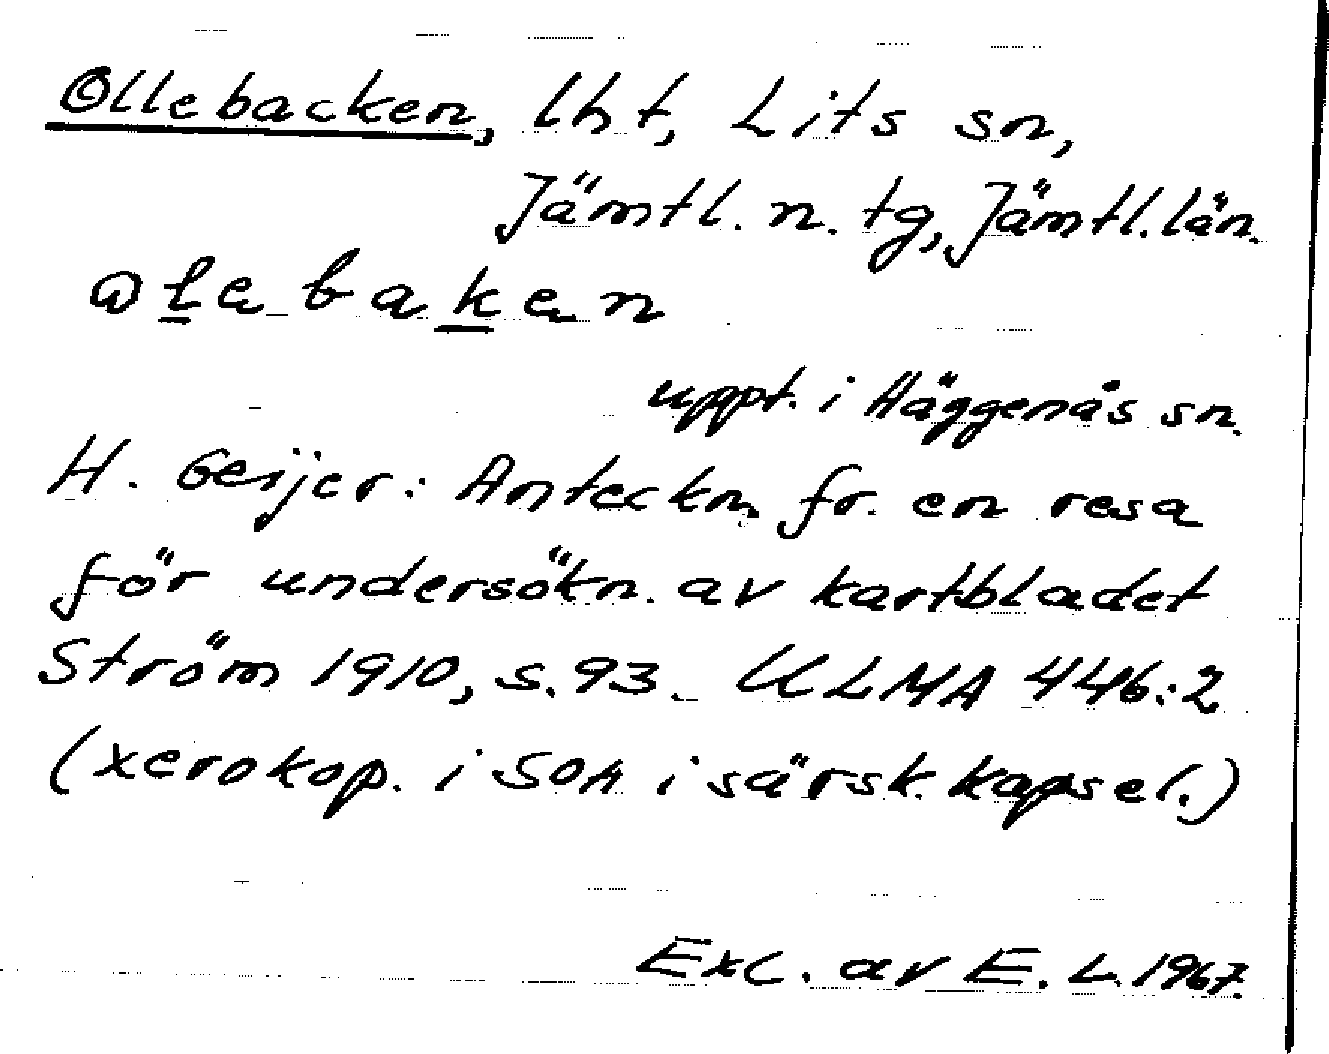 Ollebacken, lht, Lits sn,
Jämtl. n. tg, Jämtl. län.
uppt. i Häggenås sn.
H. Geijer: Anteckn. fr. en resa
för undersökn. av kartbladet
Ström 1910, s. 93. ULMA 446:2
(xerokop. i SOA i särsk. kapsel.)
Exc. av E. L. 1967.